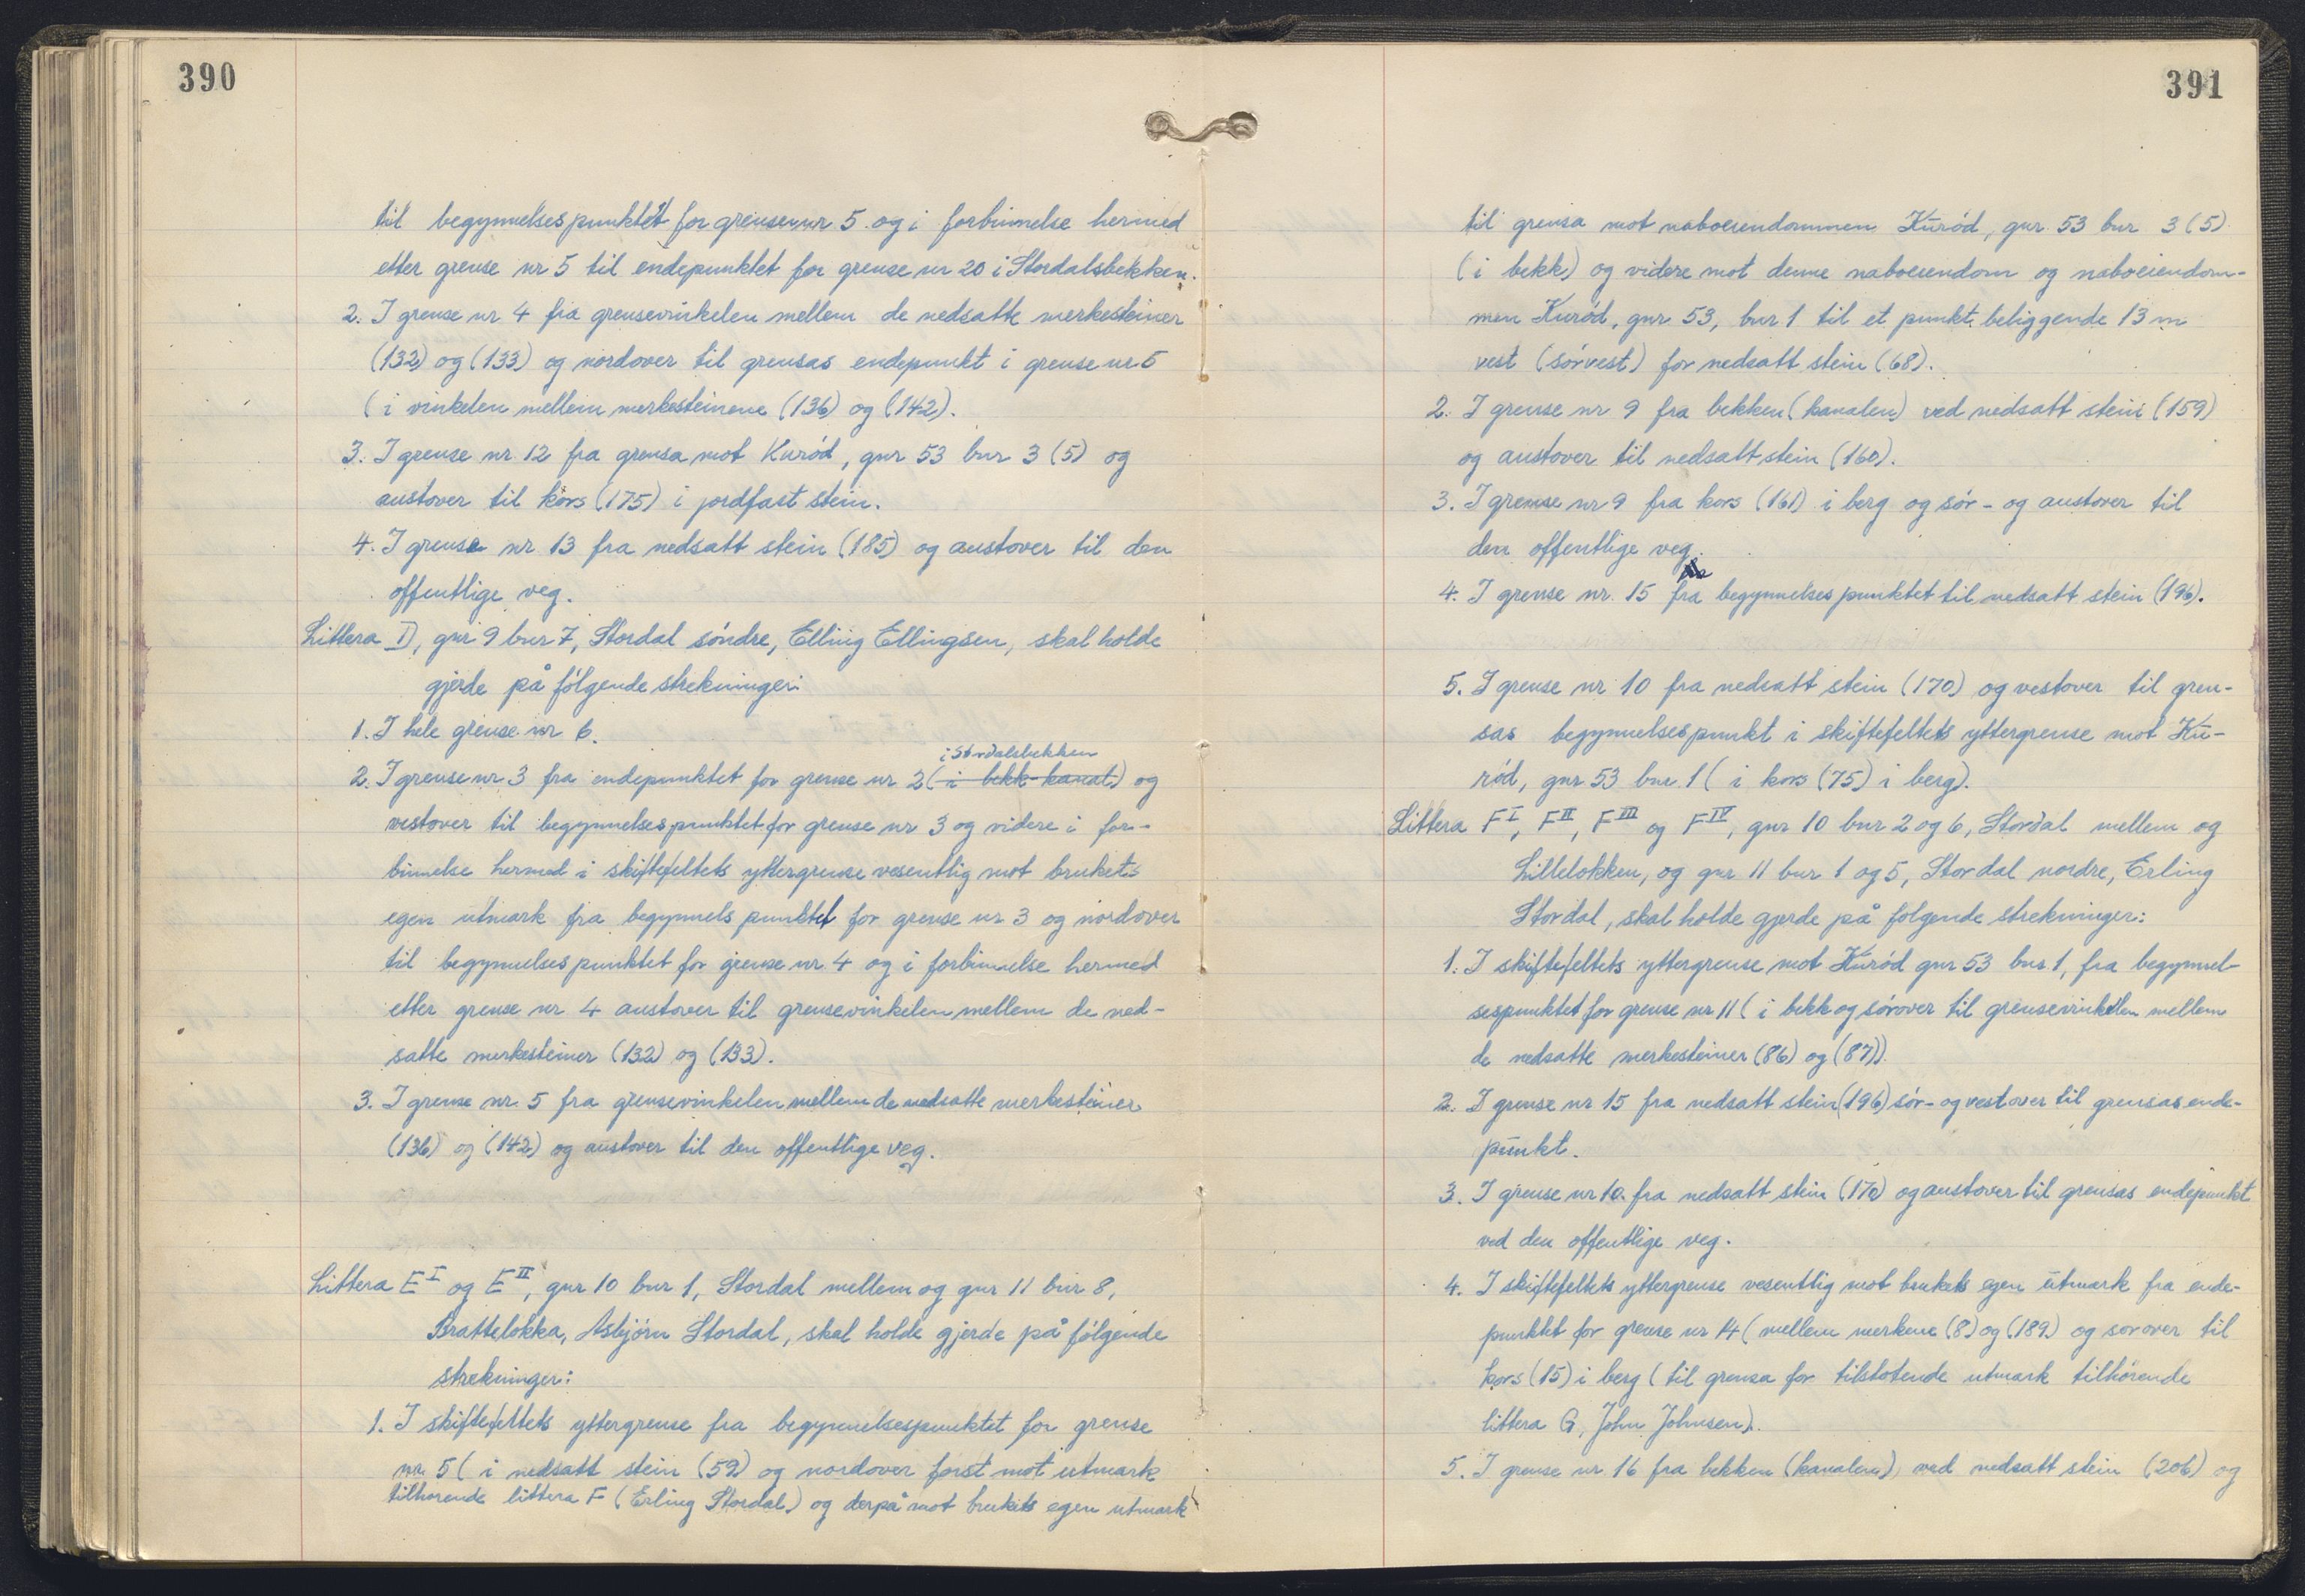 390
til begynnelsespunktet for grense nr 5 og i forbinnelse hermed
etter grense nr 5 til endepunktet for grense nr 20 i Stordalsbekken.
2. I grense nr 4 fra grensevinkelen mellem de nedsatte merkesteiner
(132) og (133) og nordover til grensas endepunkt i grense nr 5
(i vinkelen mellem merkesteinene (136) og (142).
3. I grense nr. 12 fra grensa mot Kuród, gnr 53 bnr 3 (5) og
austover til kors (175) i jordfast stein.
4. I grense nr 13 fra nedsatt stein (185) og austover til den
offentlige veg.
Littera D, gnr 9 bnr 7, Stordal sóndre, Elling Ellingsen, skal holde
gjerde på fólgende strekninger:
1. I hele grense nr 6.
i Stordalsbekken
2. I grense nr. 3 fra endepunktet for grense nr 2 (i bekk-kanal) og
vestover til begynnelsespunktet for grense nr 3 og videre i for-
binnelse hermed i skiftefeltets yttergrense vesentlig mot brukets
egen utmark fra begynnels punktet for grense nr 3 og nordover
til begynnelsespunktet for grense nr. 4 og i forbinnelse hermed
etter grense nr 4 austover til grensevinkelen mellem de ned-
satte merkesteiner (132) og (133).
3. I grense nr. 5 fra grensevinkelen mellem de nedsatte merkesteiner
(136) og (142) og austover til den offentlige veg.
Littera E I og E II, gnr 10 bnr 1, Stordal mellem og gnr 11 bnr 8,
Brattelokka, Asbjórn Stordal, skal holde gjerde på fólgende
strekninger:
1. I skiftefeltets yttergrense fra begynnelsespunktet for grense
nr. 5 (i nedsatt stein (59) og nordover forst mot utmark
tilhorende littera F (Erling Stordal) og derpå mot brukets egen utmark
391
til grensa mot naboeiendommen Kūród, gnr 53 bnr 3 (5)
(i bekk) og videre mot denne naboeiendom og naboeiendom-
men Kuród, gnr 53, bnr 1 til et punkt beliggende 13 m
vest (sórvest) for nedsatt stein (68).
2. I grense nr 9 fra bekken (kanalen) ved nedsatt stein (159)
og austover til nedsatt stein (160).
3. I grense nr 9 fra kors (161) i berg og sór- og austover til
den offentlige veg.
4. I grense nr. 15 fra begynnelsespunktet til nedsatt stein (196).
5. I grense nr 10 fra nedsatt stein (170) og vestover til gren-
sas begynnelsespunkt i skiftefeltets yttergrense mot Kū-
ród, gnr 53 bnr 1 (i kors (75) i berg).
Littera F I, F II, F III og F IV, gnr 10 bnr 2 og 6, Stordal mellem og
Lillelokken, og gnr 11 bnr 1 og 5, Stordal nordre, Erling
Stordal, skal holde gjerde på folgende strekninger:
1. I skiftefeltets yttergrense mot Kūród gnr 53 bnr 1, fra begynnel-
sespunktet for grense nr 11 (i bekk og sórover til grensevinkelen mellem
de nedsatte merkesteiner (86) og (87)).
2. I grense nr 15 fra nedsatt stein (196) sór- og vestover til grensas ende-
pūnkt.
3. I grense nr 10. fra nedsatt stein (170) og austover til grensas endepunkt
ved den offentlige veg.
4. I skiftefeltets yttergrense vesentlig mot brukets egen ūtmark fra ende-
punktet for grense nr 14 (mellem merkene (8) og (189) og sorover til
kors (15) i berg (til grensa for tilstotende utmark tilhórende
littera G, John Johnsen).
5. I grense nr. 16 fra bekken (kanalen) ved nedsatt stein (206) og